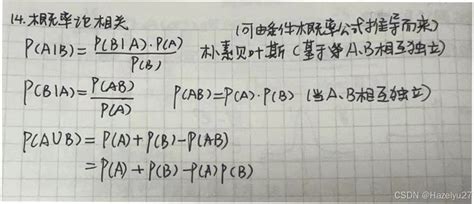 14.概率论相关
(可由条件概率公式推导而来)
P(A|B) = P(B|A)·P(A) / P(B)
朴素贝叶斯 (基于条A.B相互独立)
P(B|A) = P(AB) / P(A)
P(AB)=P(A)·P(B) (当A、B相互独立)
P(AUB) = P(A)+P(B)-P(AB)
= P(A)+P(B)-P(A)P(B)
CSDN @Hazelyu27